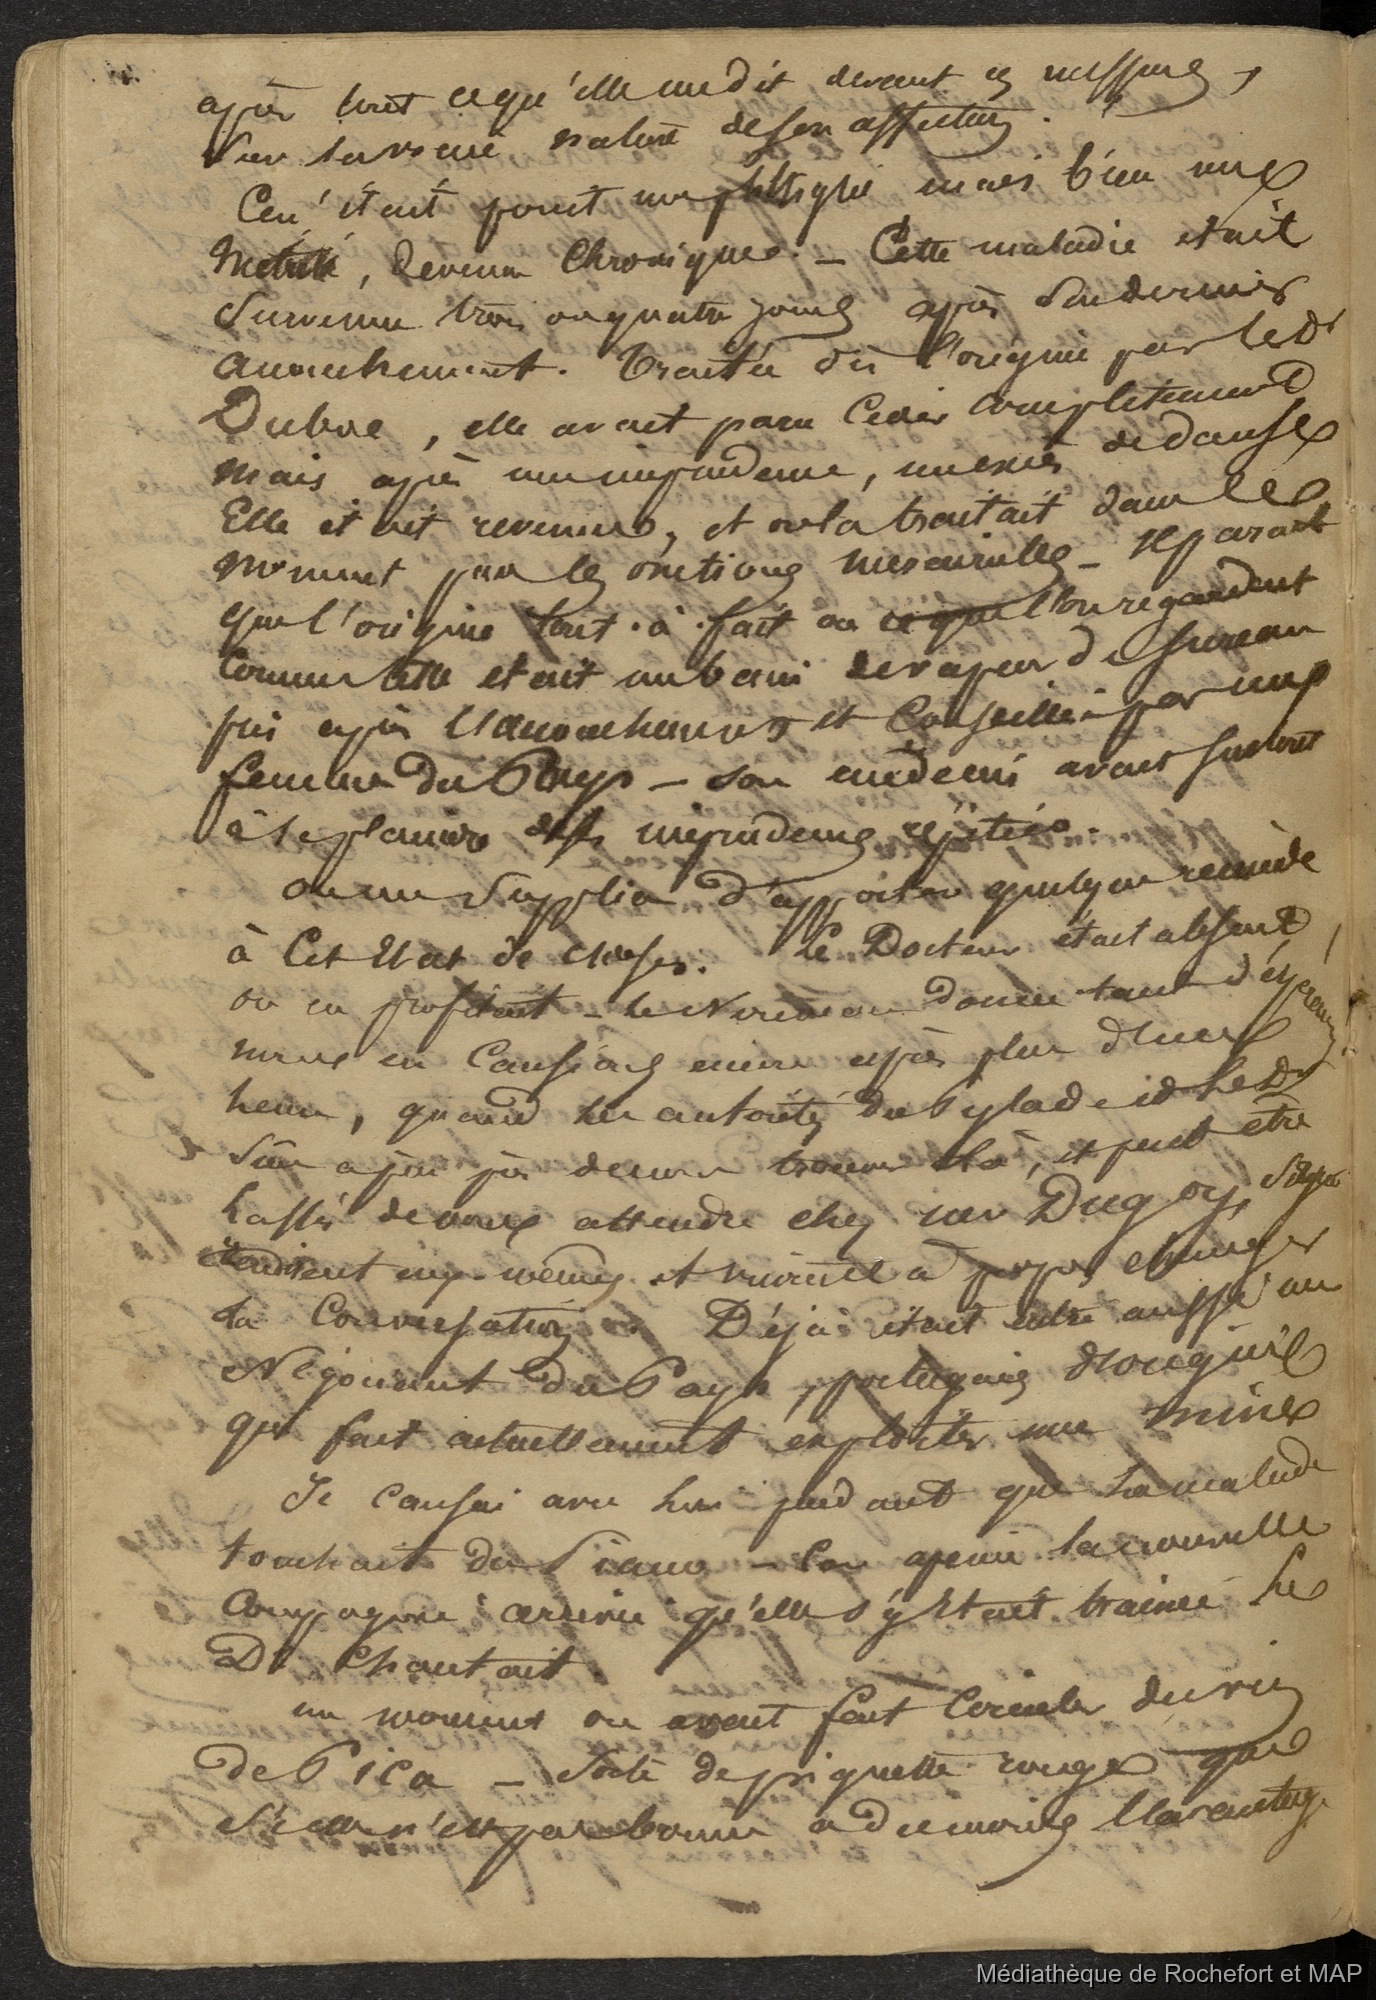 après tout ce qu'elle me dit devant ces messieurs,
sur la vraie nature de son affection.
Ce n'était point une phtisie mais bien une
Métrite, devenue Chronique. — Cette maladie était
Survenue trois ou quatre jours après son dernier
accouchement. Traitée dès l'origine par le Dr
Duboc, elle avait paru Céder Complètement
mais après une imprudence, un excès de danse
Elle était revenue, et on la traitait dans le
moment par les onctions mercurielles — Il parait
que l'origine tout-à-fait ou ce que l'on regardent
Comme telle était un bain de vapeur de sureau
pris après l'accouchement et Conseillé par une
femme du Pays — son médecin avait surtout
à se plaindre des imprudences répétées.
on me supplia d'apporter quelque remède
à Cet état de choses. Le Docteur était absent,
on en profitait — le Nouveau donne tant d'espérances!
nous en Causions encore après plus d'une
heure, quand les autorités du Pylade et le Dr
de vous attendre chez Mr Dugoy,
eux-mêmes et a propos changer
La Conversation. Déjà était entré aussi un
Négociant du Pays, portugais d'origine
qui fait actuellement exploiter une mine
Je Causai avec lui pendant que la malade
touchait du Piano — Car à peine la nouvelle
Compagnie arrivée qu'elle s'y était trainée. Le
Dr Chantait.
un moment on avait fait Circuler du vin
de Pica — sorte de piquette rouge que
si elle n'est pas bonne a du moins l'avantage